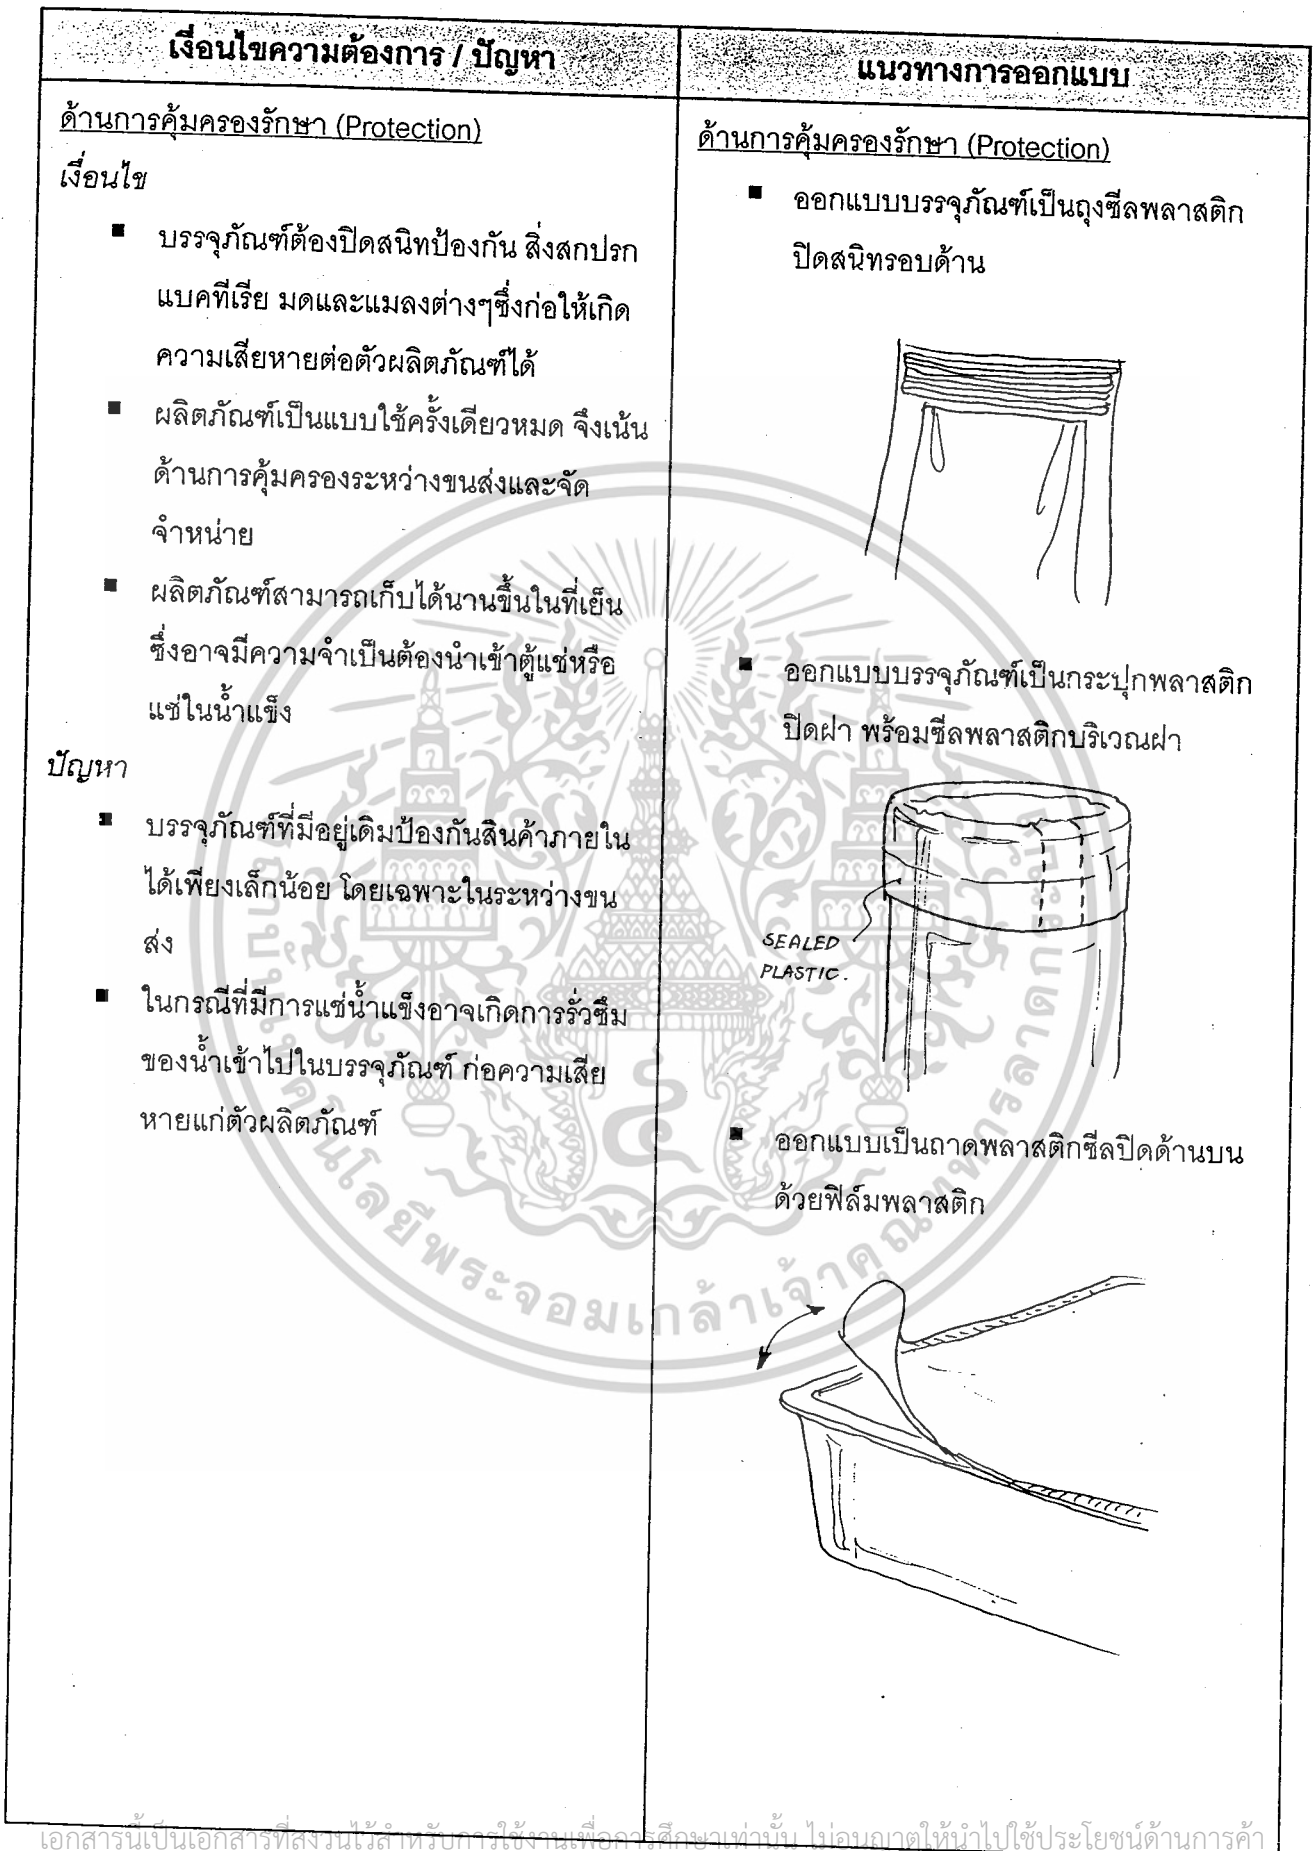 เงื่อนไขความต้องการ / ปัญหา
ด้านการคุ้มครองรักษา (Protection)
เงื่อนไข
■ บรรจุภัณฑ์ต้องปิดสนิทป้องกัน สิ่งสกปรก
แบคทีเรีย มดและแมลงต่างๆซึ่งก่อให้เกิด
ความเสียหายต่อตัวผลิตภัณฑ์ได้
■ ผลิตภัณฑ์เป็นแบบใช้ครั้งเดียวหมด จึงเน้น
ด้านการคุ้มครองระหว่างขนส่งและจัด
จำหน่าย
■ ผลิตภัณฑ์สามารถเก็บได้นานขึ้นในที่เย็น
ซึ่งอาจมีความจำเป็นต้องนำเข้าตู้แช่หรือ
แช่ในน้ำแข็ง
ปัญหา
■ บรรจุภัณฑ์ที่มีอยู่เดิมป้องกันสินค้าภายใน
ได้เพียงเล็กน้อย โดยเฉพาะในระหว่างขน
ส่ง
■ ในกรณีที่มีการแช่น้ำแข็งอาจเกิดการรั่วซึม
ของน้ำเข้าไปในบรรจุภัณฑ์ ก่อความเสีย
หายแก่ตัวผลิตภัณฑ์
แนวทางการออกแบบ
ด้านการคุ้มครองรักษา (Protection)
■ ออกแบบบรรจุภัณฑ์เป็นถุงซีลพลาสติก
ปิดสนิทรอบด้าน
■ ออกแบบบรรจุภัณฑ์เป็นกระปุกพลาสติก
ปิดฝา พร้อมซีลพลาสติกบริเวณฝา
SEALED
PLASTIC.
■ ออกแบบเป็นถาดพลาสติกซีลปิดด้านบน
ด้วยฟิล์มพลาสติก
เอกสารนี้เป็นเอกสารที่สงวนไว้สำหรับการใช้งานเพื่อการศึกษาเท่านั้น ไม่อนุญาตให้นำไปใช้ประโยชน์ด้านการค้า